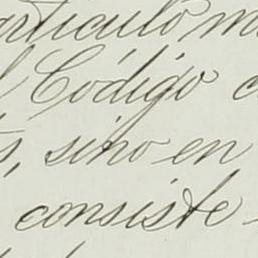 artículo
Código
sino en
consiste